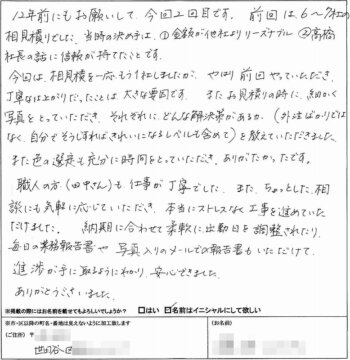 12年前にもお願いして、今回2回目です。前回は6〜7社の
相見積りでした。当時の決め手は、①金額が他社よりリーズナブル ②高橋
社長の話に信頼が持てたことです。
今回は、相見積を一応もう1社しましたが、やはり前回やっていただき、
丁寧な仕上がりだったことは大きな要因です。またお見積りの時に、細かく
写真をとっていただき、それぞれにどんな解決策があるか、(外注ばかりでは
なく、自分でそうじすればきれいになるレベルも含めて)を教えていただきました。
また色の選択も充分に時間をとっていただき、ありがたかったです。
職人の方(田中さん)も、仕事が丁寧でした。また、ちょっとした相
談にも気軽に応じていただき、本当にストレスなく工事を進めていた
だけました。納期に合わせて柔軟に出勤日を調整されたり、
毎日の業務報告書や写真入りのメールでの報告書もいただけて、
進捗が手に取るようにわかり、安心できました。
ありがとうございました。
※掲載の際にはお名前を載せてもよろしいでしょうか? □はい ☑名前はイニシャルにして欲しい
※市・区以降の町名・番地は見えないように加工致します
(ご住所) 〒
世田谷区
(お名前)